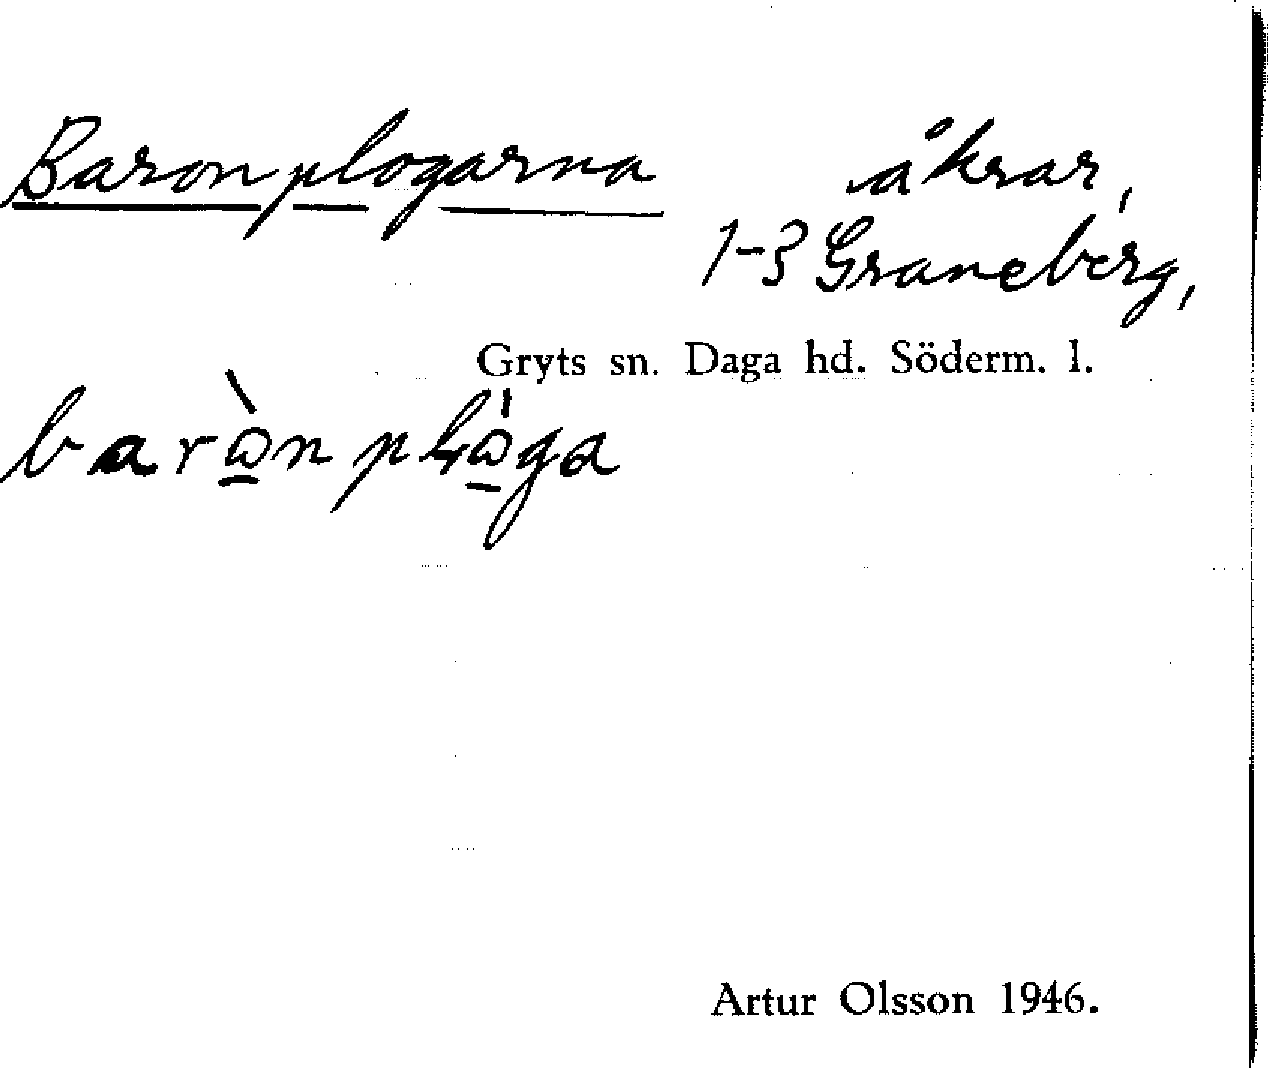 Baronplogarna åkrar,
1-3 Graneberg,
Gryts sn. Daga hd. Söderm. l.
Artur Olsson 1946.